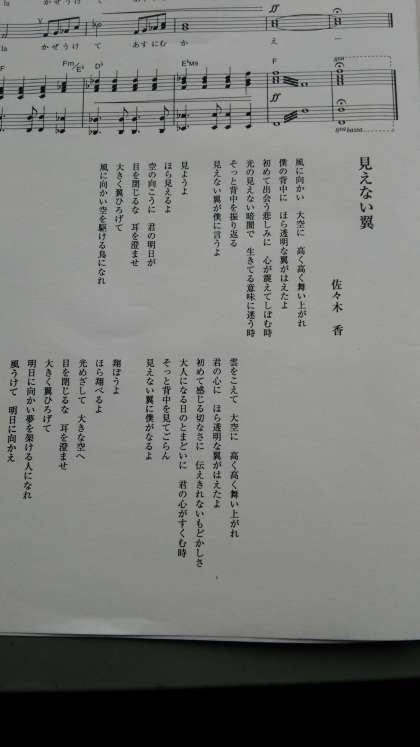 la かぜうけ て あすにむ
ff
la かぜうけ て あすにむ か え ー
F Fm/E♭ D♭ E♭sus F
ff
8va
8va bassa
見えない翼
佐々木 香
風に向かい 大空に 高く高く舞い上がれ
僕の背中に ほら透明な翼がはえたよ
初めて出会う悲しみに 心が震えてしぼむ時
光の見えない暗闇で 生きてる意味に迷う時
そっと背中を振り返る
見えない翼が僕に言うよ
見ようよ
ほら見えるよ
空の向こうに 君の明日が
目を閉じるな 耳を澄ませ
大きく翼ひろげて
風に向かい空を駆ける鳥になれ
雲をこえて 大空に 高く高く舞い上がれ
君の心に ほら透明な翼がはえたよ
初めて感じる切なさに 伝えきれないもどかしさ
大人になる日のとまどいに 君の心がすくむ時
そっと背中を見てごらん
見えない翼に僕がなるよ
翔ぼうよ
ほら翔べるよ
光めざして 大きな空へ
目を閉じるな 耳を澄ませ
大きく翼ひろげて
明日に向かい夢を架ける人になれ
風うけて 明日に向かえ